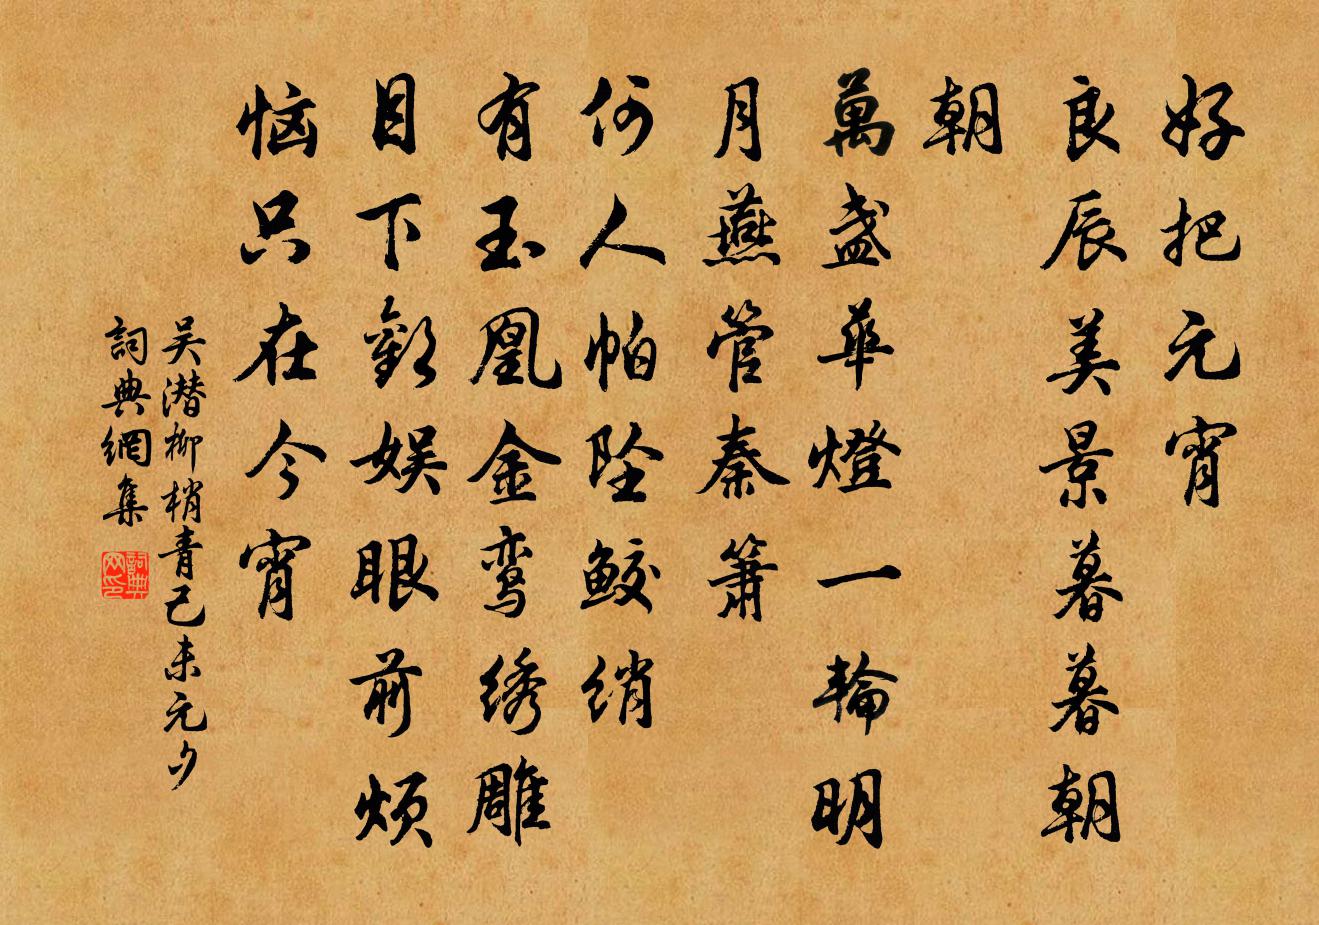 好把元宵
良辰美景暮暮朝
朝
萬盏華燈一輪明
月燕管秦箫
何人帕坠鲛绡
有玉凰金鸾绣雕
目下歡娱眼前烦
恼只在今宵
吴潜柳梢青己未元夕
詞典網集
詞典網印